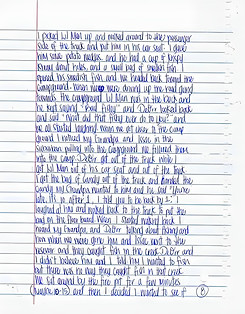 I picked Lil Man up and walked around to the passenger
side of the truck and put him in his car seat. I gave
him some potato wedges and he had a cup of
and a small bag of Swedish fish. I
opened his Swedish fish and we headed back toward the
campground. When we were driving up the road going
towards the campground Lil Man was in the back and
he kept saying "dead fishy" and Deter looked back
and said "What did that fishy ever do to you?" and
we all started laughing. When we got over to the camp
ground I noticed my Grandpa and
pulling into the campground. We followed them
into the camp. Deter got out of the truck while I
got Lil Man out of his car seat and out of the truck.
I got the bag of candy out of the truck and handed the
candy my Grandpa wanted to him and he said "You're
late. It's 20 after 1. I told you to be back by 1." I
laughed at him and walked back to the truck to get the
bag on the floor board. When I started walking back I
heard my Grandpa and Deter talking about fishing and
him when we were gone him and went to the
and they caught fish in the creek. Deter and
I didn't believe him and I told him I wanted to fish
but there was no way they caught fish in that creek.
We sat around by the fire pit for a few minutes
and then I decided I wanted to see if
8